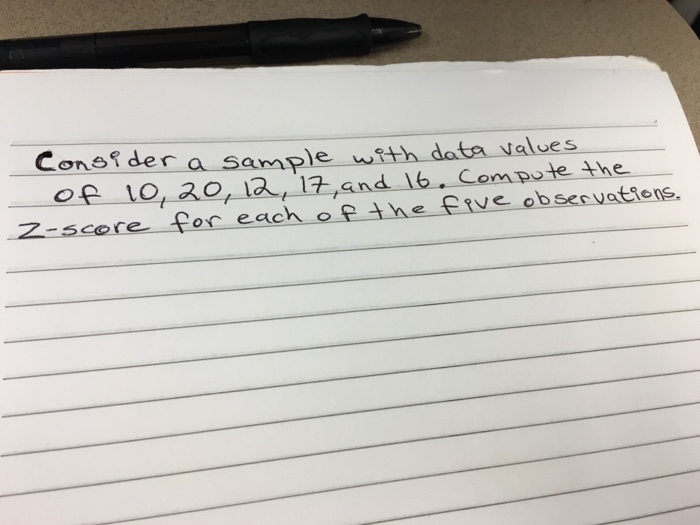 Consider a sample with data values
of 10, 20, 12, 17, and 16. Compute the
Z-score for each of the five observations.